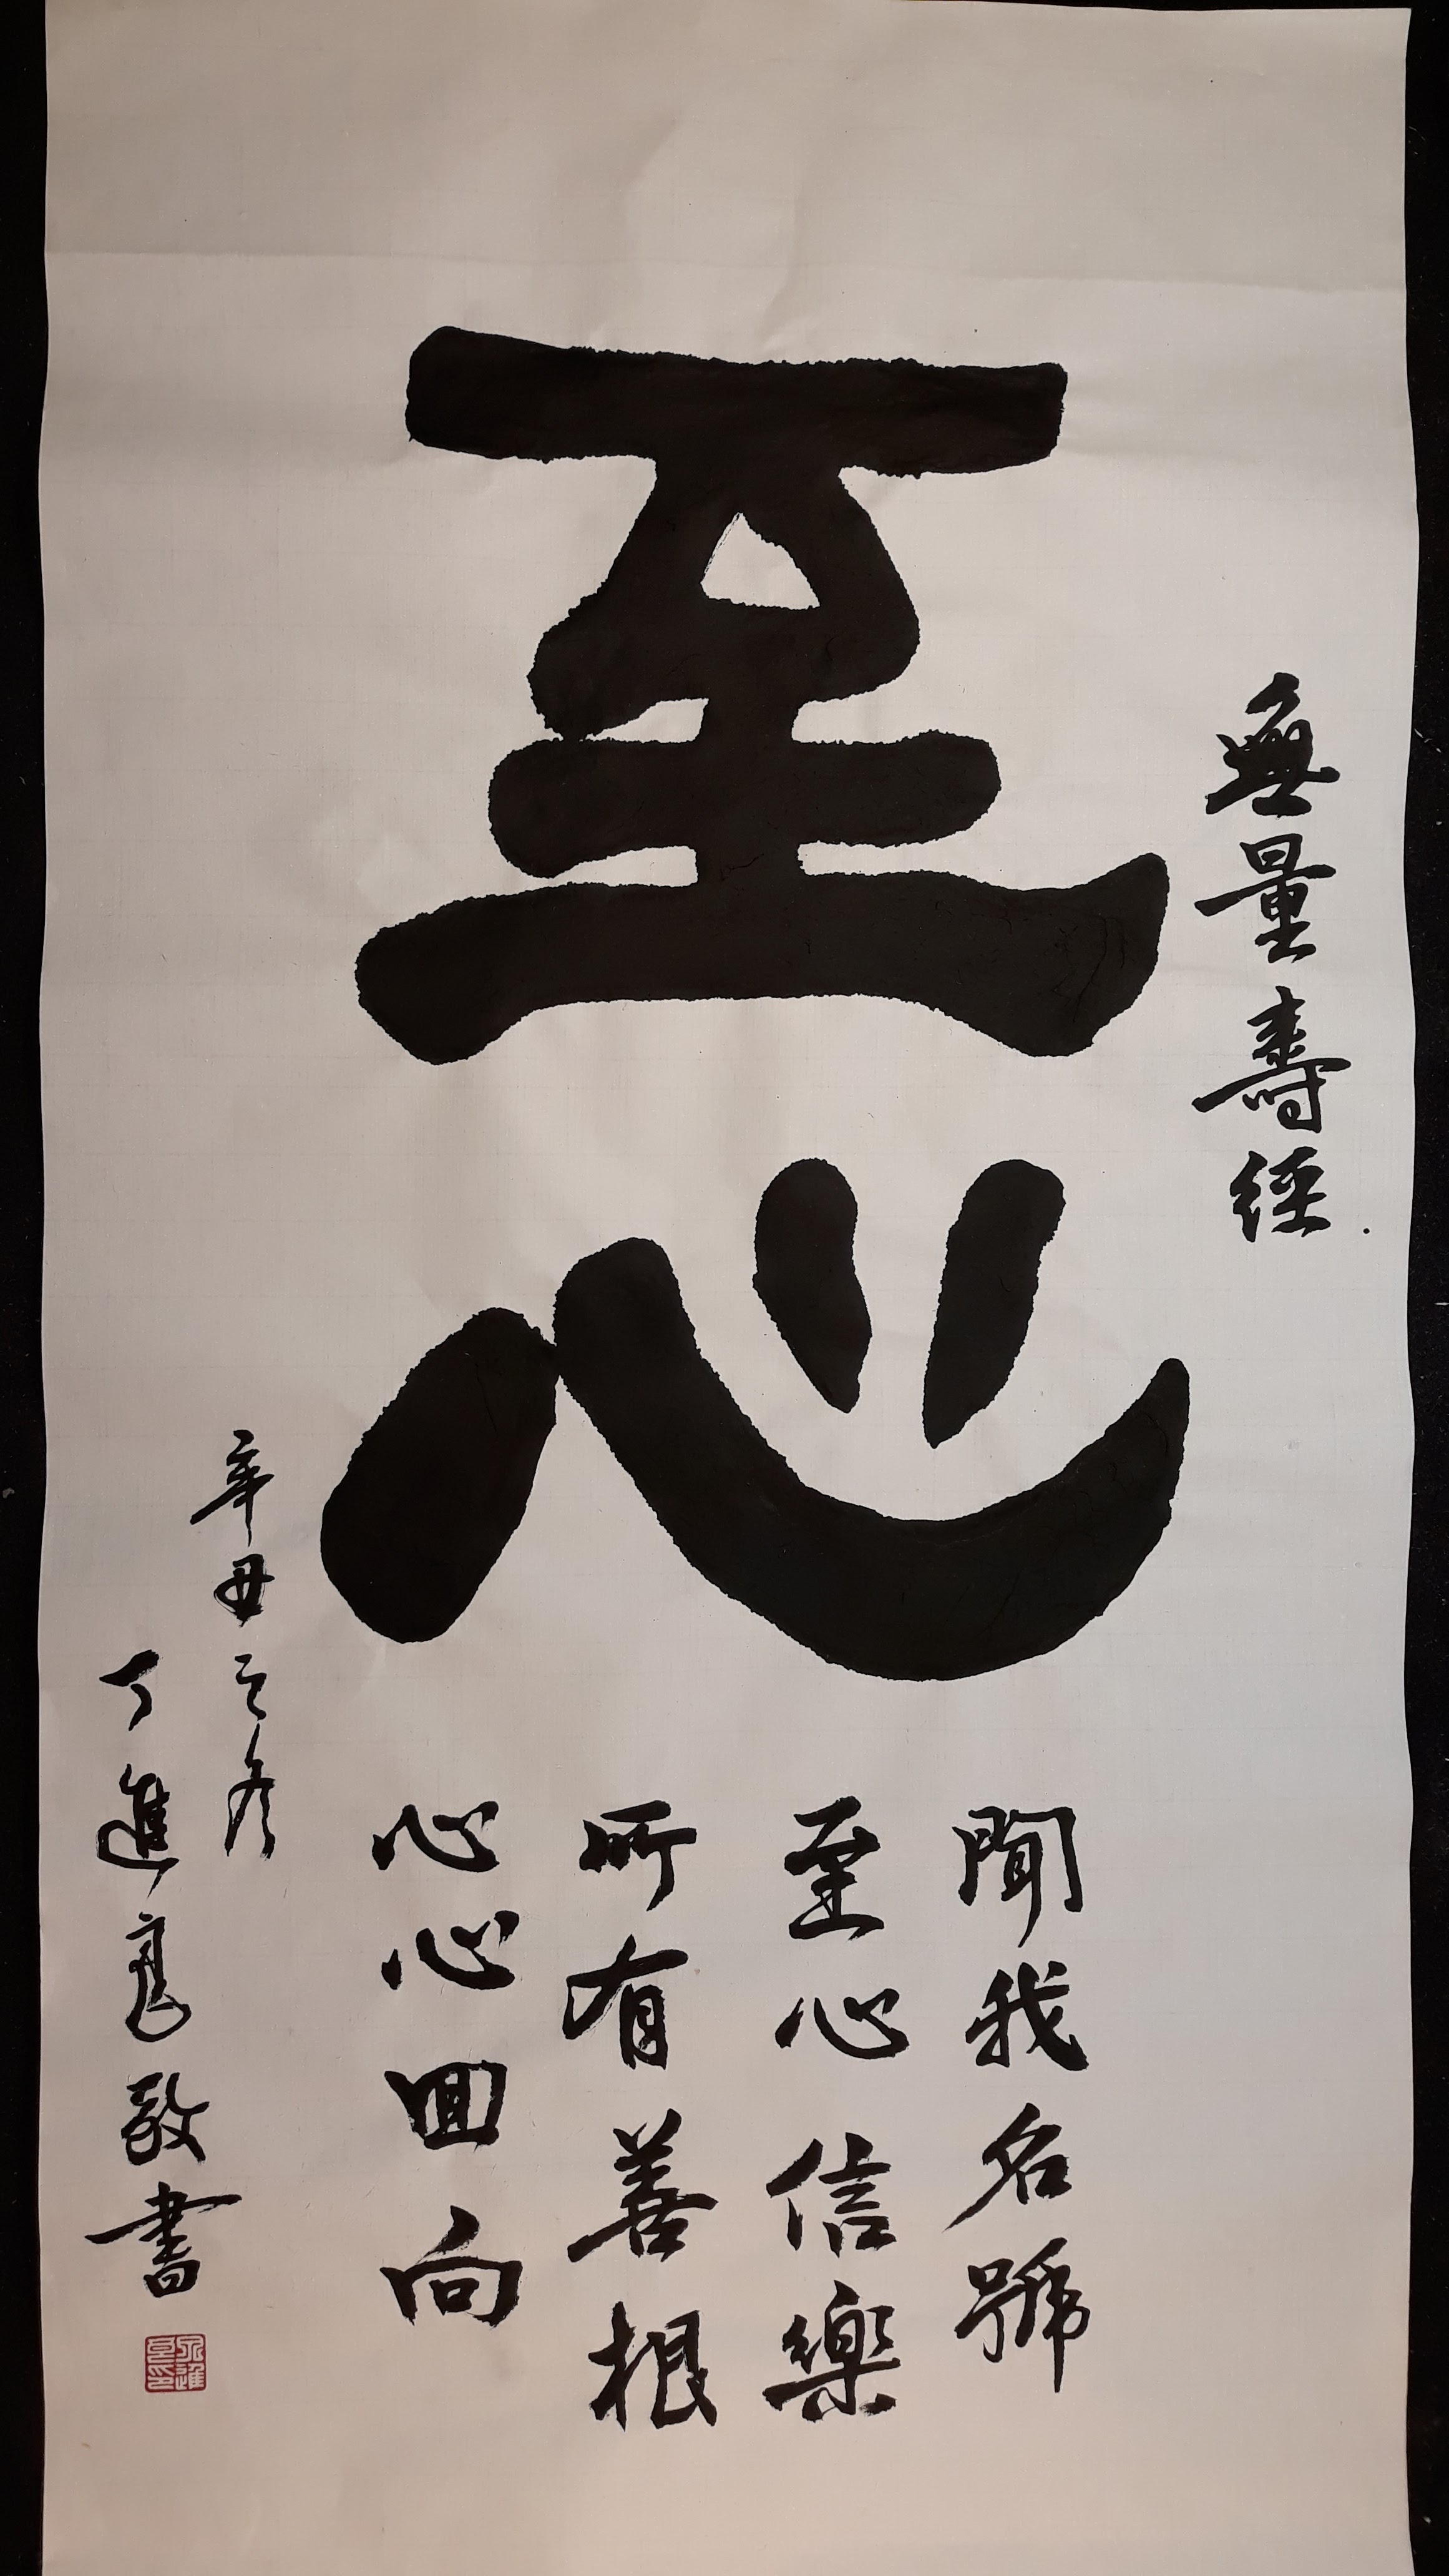 無量壽經
至心
聞我名號
至心信樂
所有善根
心心回向
辛丑之彥
丁進亮敬書